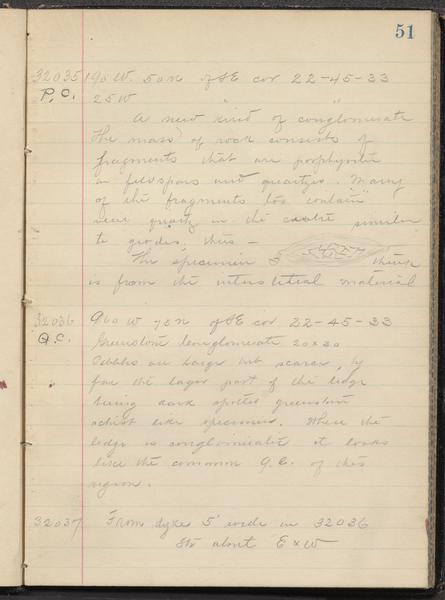 51
32035 190 W. 50 N of SE cor 22-45-33
P.C. 25 W " "
A new kind of conglomerate
The mass of rock consists of
fragments that are porphyritic
in feldspars and quartzes. Many
of the fragments too contain
vein quartz in the centre similar
to geodes, thus —
The specimen I think
is from the interstitial material
32036 960 W 75 N of SE cor 22-45-33
Q.C. Greenstone Conglomerate 20 x 30
Pebbles are large but scarce, by
far the larger part of the ledge
being dark spotted greenstone
schist like specimen. Where the
ledge is conglomeratic it looks
like the common G.C. of this
region.
32037 From dyke 5' wide in 32036
Str about E & W